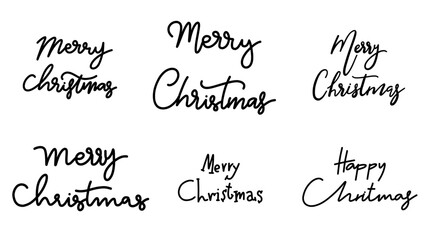 Merry
Christmas
Merry
Christmas
Merry
Christmas
Merry
Christmas
Merry
Christmas
Happy
Chritmas